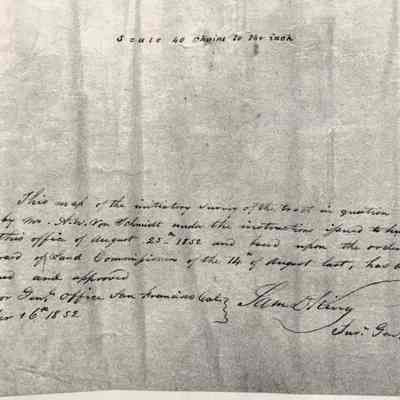 Scale 40 Chains to the inch
This map of the initiatory survey of the tract in question
by Mr. A.W. Von Schmidt under the instructions issued to him
this office of August 25th 1852 and based upon the order
of Land Commissioners of the 14th of August last, has
and approved
Genl. Office San Francisco Cal.
16th 1852
Saml D King
Sur. Gen